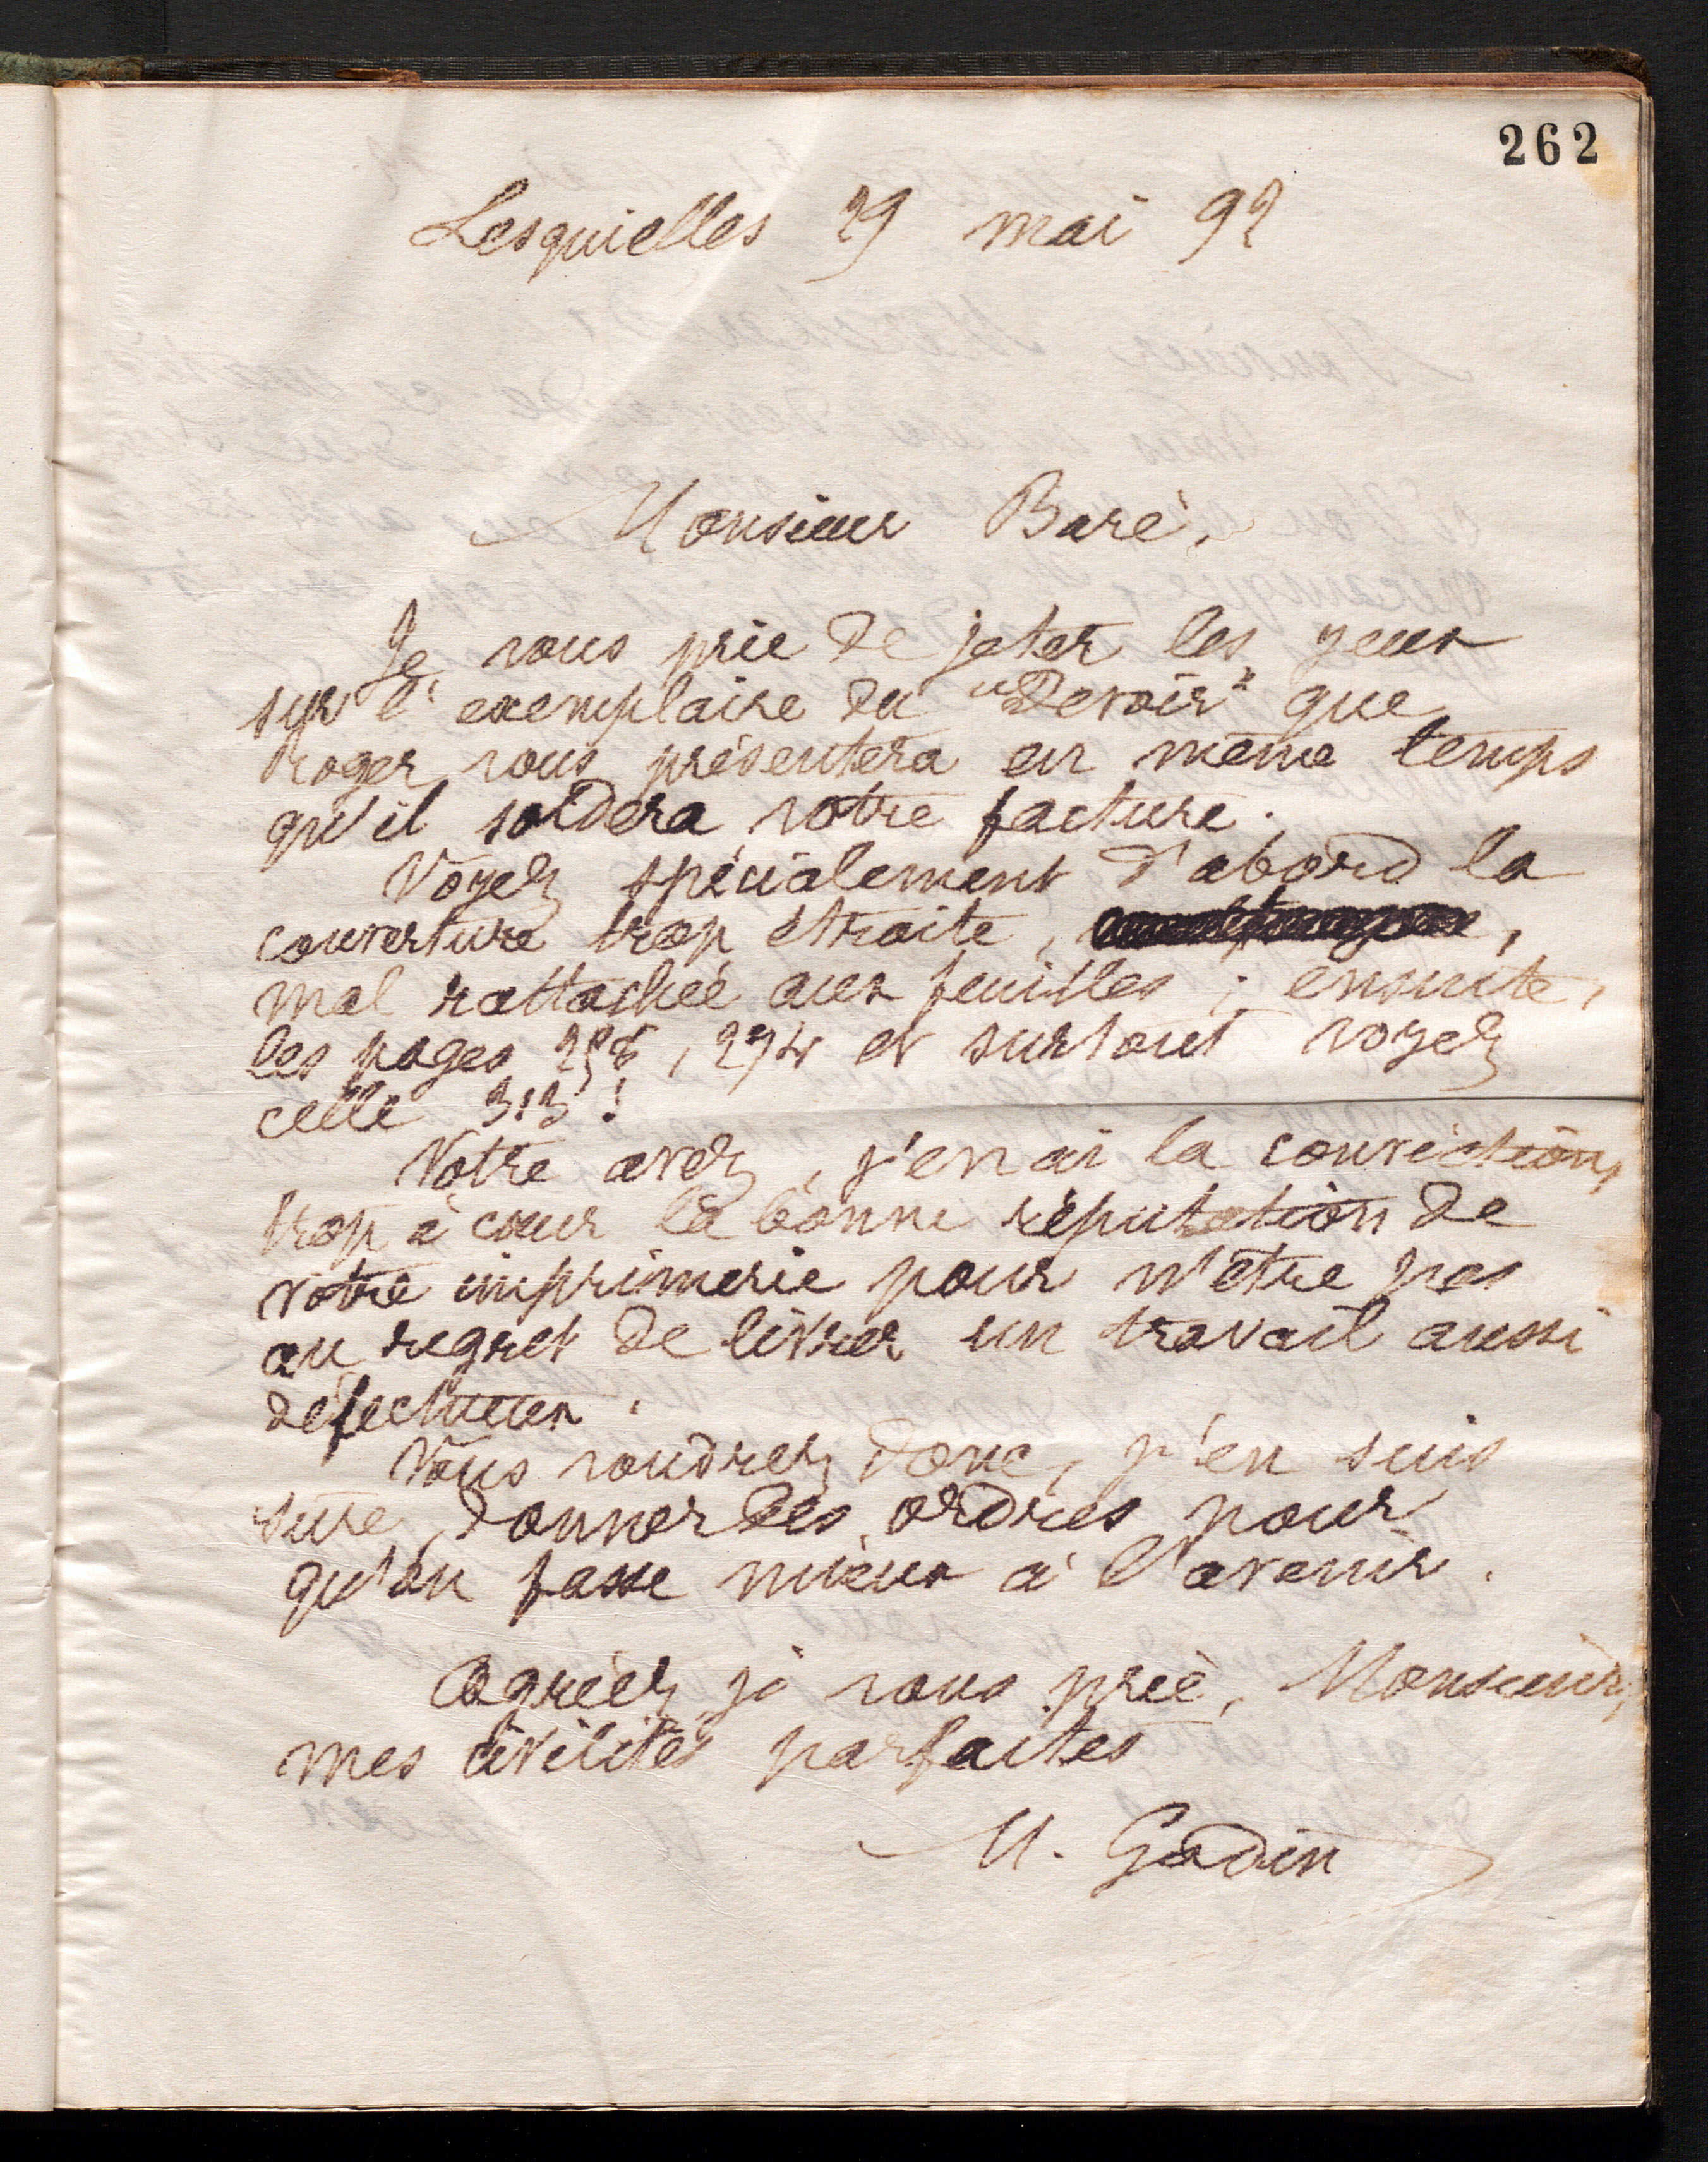 262
Lesquielles 29 mai 92
Monsieur Baré,
Je vous prie de jeter les yeux
sur l'exemplaire du "Devoir" que
Roger vous présentera en même temps
qu'il soldera votre facture.
Voyez spécialement d'abord la
couverture trop étroite, ,
mal rattachée aux feuilles ; ensuite,
les pages 258, 274 et surtout voyez
celle 313 !
Votre avez, j'en ai la conviction,
trop à cœur la bonne réputation de
votre imprimerie pour n'être pas
au regret de livrer un travail aussi
défectueux.
Vous voudrez donc, j'en suis
sûre, donner des ordres pour
qu'on fasse mieux à l'avenir.
Agréez, je vous prie, Monsieur,
mes civilités parfaites
M. Godin